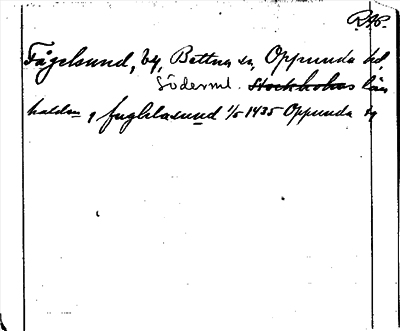 RAP.
Fågelsund, by, Bettna sn, Oppunda hd,
Söderml. Stockholms län
halds. i fughlasund 1/5 1435 Oppunda